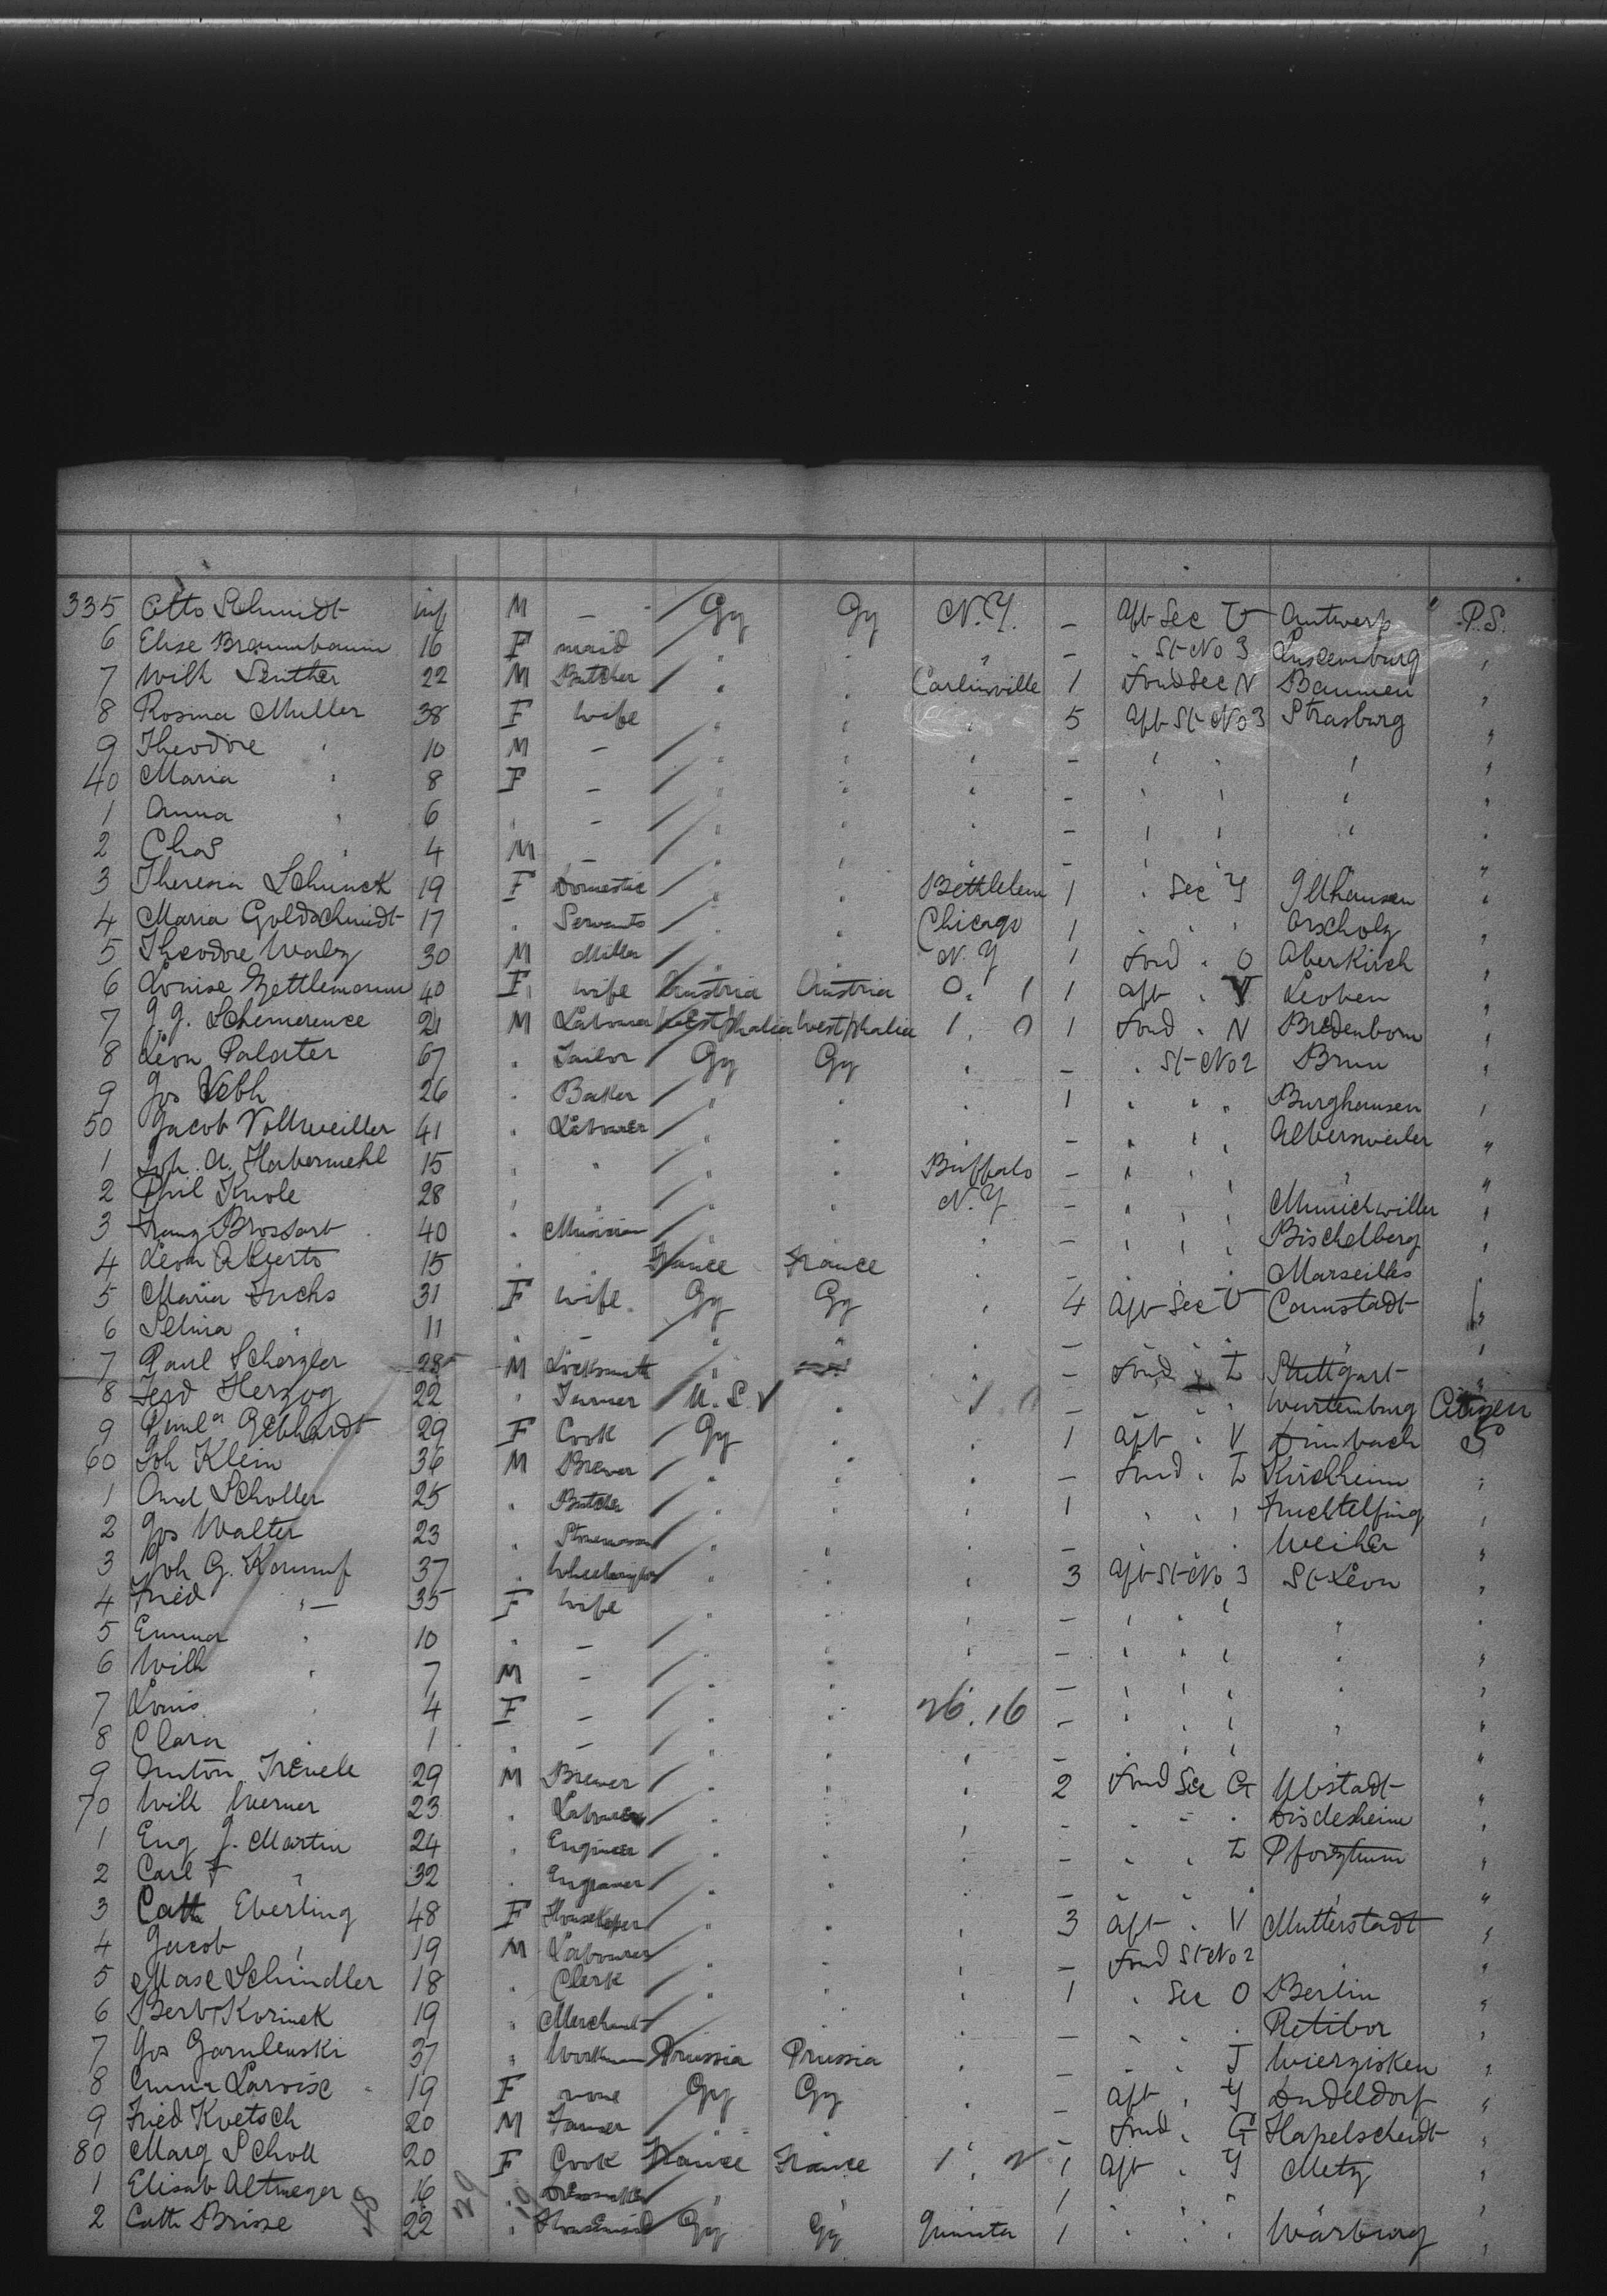 335 Otto Schmidt inf M – - Gy Gy N.Y. – Aft Sec U Antwerp " P.S.
6 Elise Braumbaum 16 F maid " " " – " St No 3 Luxemburg "
7 Wilh Senther 22 M Butcher " " Carlinville 1 Forwd Sec N Baumen "
8 Rosina Muller 38 F wife " " " 5 Aft St No 3 Strasburg "
9 Theodore " 10 M – " " " – " " " "
40 Maria " 8 F – " " " – " " " "
1 Anna " 6 " – " " " – " " " "
2 Chas " 4 M – " " " – " " " "
3 Theresia Schunck 19 F Domestic " " Bethlehem 1 " Sec Y Illhausen "
4 Maria Goldschmidt 17 " Servants " " Chicago 1 " " " Orscholz "
5 Theodore Walz 30 M Miller " " N.Y 1 Forwd " O Aberkirch "
6 Louise Zettlemann 40 F wife Austria Austria 0. 1 1 Aft " V Leoben "
7 J.J. Schemerence 21 M Labourer Westphalia Westphalia 1. 0 1 Forwd " N Bredenborn "
8 Leon Palarter 67 " Tailor Gy Gy " – " St No 2 Brun "
9 Jos Vebh 26 " Baker " " " 1 " " " Burghausen "
50 Jacob Vollweiller 41 " Labourer " " " – " " " Albersweiler "
1 Joh. A. Habermehl 15 " " " " Buffalo – " " " " "
2 Phil Knole 28 " " " " N.Y – " " " Munichwiller "
3 Franz Brossart 40 " Musician " " " – " " " Bischelberg "
4 Leon Alberts 15 " " France France " – " " " Marseilles "
5 Maria Fuchs 31 F wife Gy Gy " 4 Aft Sec U Cannstadt "
6 Selina " 11 " – " " " – "
7 Paul Scherzler 28 M Locksmith " " – Forwd " L Stuttgart "
8 Ferd Herzog 22 " Turner U.S. V " 1 0 – " " " Wurtemburg Citizen
9 Paula Gebhardt 29 F Cook Gy " " 1 Aft " V Dimbach S
60 Joh Klein 36 M Brewer " " " – Forwd " L Kirchheim "
1 And Scholler 25 " Butcher " " " 1 " " " Truchtelfing "
2 Jos Walter 23 " Stonemason " " " – " " " Weiher "
3 Joh G. Kammf 37 " Wheelwright " " " 3 Aft St No 3 St Leon "
4 Fried " – 35 F wife " " " – " " " " "
5 Emma " 10 " – " " " – " " " " "
6 Wilh " 7 M – " " " – " " " " "
7 Louis " 4 F – " " 26. 16 – " " " " "
8 Clara " 1 " – " " " – " " " " "
9 Anton Treuele 29 M Brewer " " " 2 Forwd Sec G Ubstadt "
70 Wilh Werner 23 " Labourer " " " – " – " Disdesheim "
1 Eug J. Martin 24 " Engineer " " " – " " L Pforzheim "
2 Carl F " 32 " Engraver " " " – " " " " "
3 Cath Eberling 48 F Housekeper " " " 3 Aft " V Mutterstadt "
4 Jacob " 19 M Labourer " " " – Forwd St No 2 " "
5 Max Schindler 18 " Clerk " " " 1 " Sec O Berlin "
6 Bert Korinek 19 " Merchant " " " – " " " Retibor "
7 Jos Garnlenski 37 " Workman Prussia Prussia " – " " J Wierzisken "
8 Anna Larvise 19 F none Gy Gy " – Aft " Y Dudeldorf "
9 Fried Kvetsch 20 M Farmer " " " – Forwd " G Hapelscheidt "
80 Marg Scholl 20 F Cook France France 1 " 2 1 Aft " Y Metz "
1 Elisab Altmeyer 16 " Dressmaker " " 1 " " " "
2 Cath Brisse 18 22 29 19 " Housemaid Gy Gy 1 " " " Warburg "